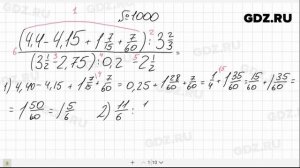 GDZ.RU
№1000
1
6 (4,4 - 4,15 + 1 7/15 + 7/60) : 3 2/3
(3 1/2 - 2,75) : 0,2 - 2 1/2
1) 4,4 - 4,15 + 1 7/15 + 7/60 = 0,25 + 1 28/60 + 7/60 = 1/4 + 1 35/60 = 15/60 + 1 35/60 =
= 1 50/60 = 1 5/6 2) 11/6 :
GDZ.RU